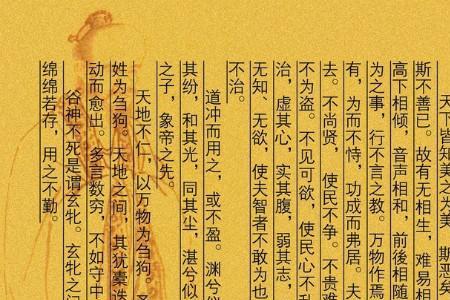 天下皆知美之为美，斯恶矣
斯不善已。故有无相生，难易相
高下相倾，音声相和，前後相随
为之事，行不言之教。万物作焉
有，为而不恃，功成而弗居。夫
去。不尚贤，使民不争。不贵难
为不盗。不见可欲，使民心不乱
治，虚其心，实其腹，弱其志，
无知、无欲，使夫智者不敢为也
不治。
道冲而用之，或不盈。渊兮似
其纷，和其光，同其尘，湛兮似
之子，象帝之先。
天地不仁，以万物为刍狗。圣
姓为刍狗。天地之间，其犹橐迭
动而愈出。多言数穷，不如守中
谷神不死是谓玄牝。玄牝之门
绵绵若存，用之不勤。